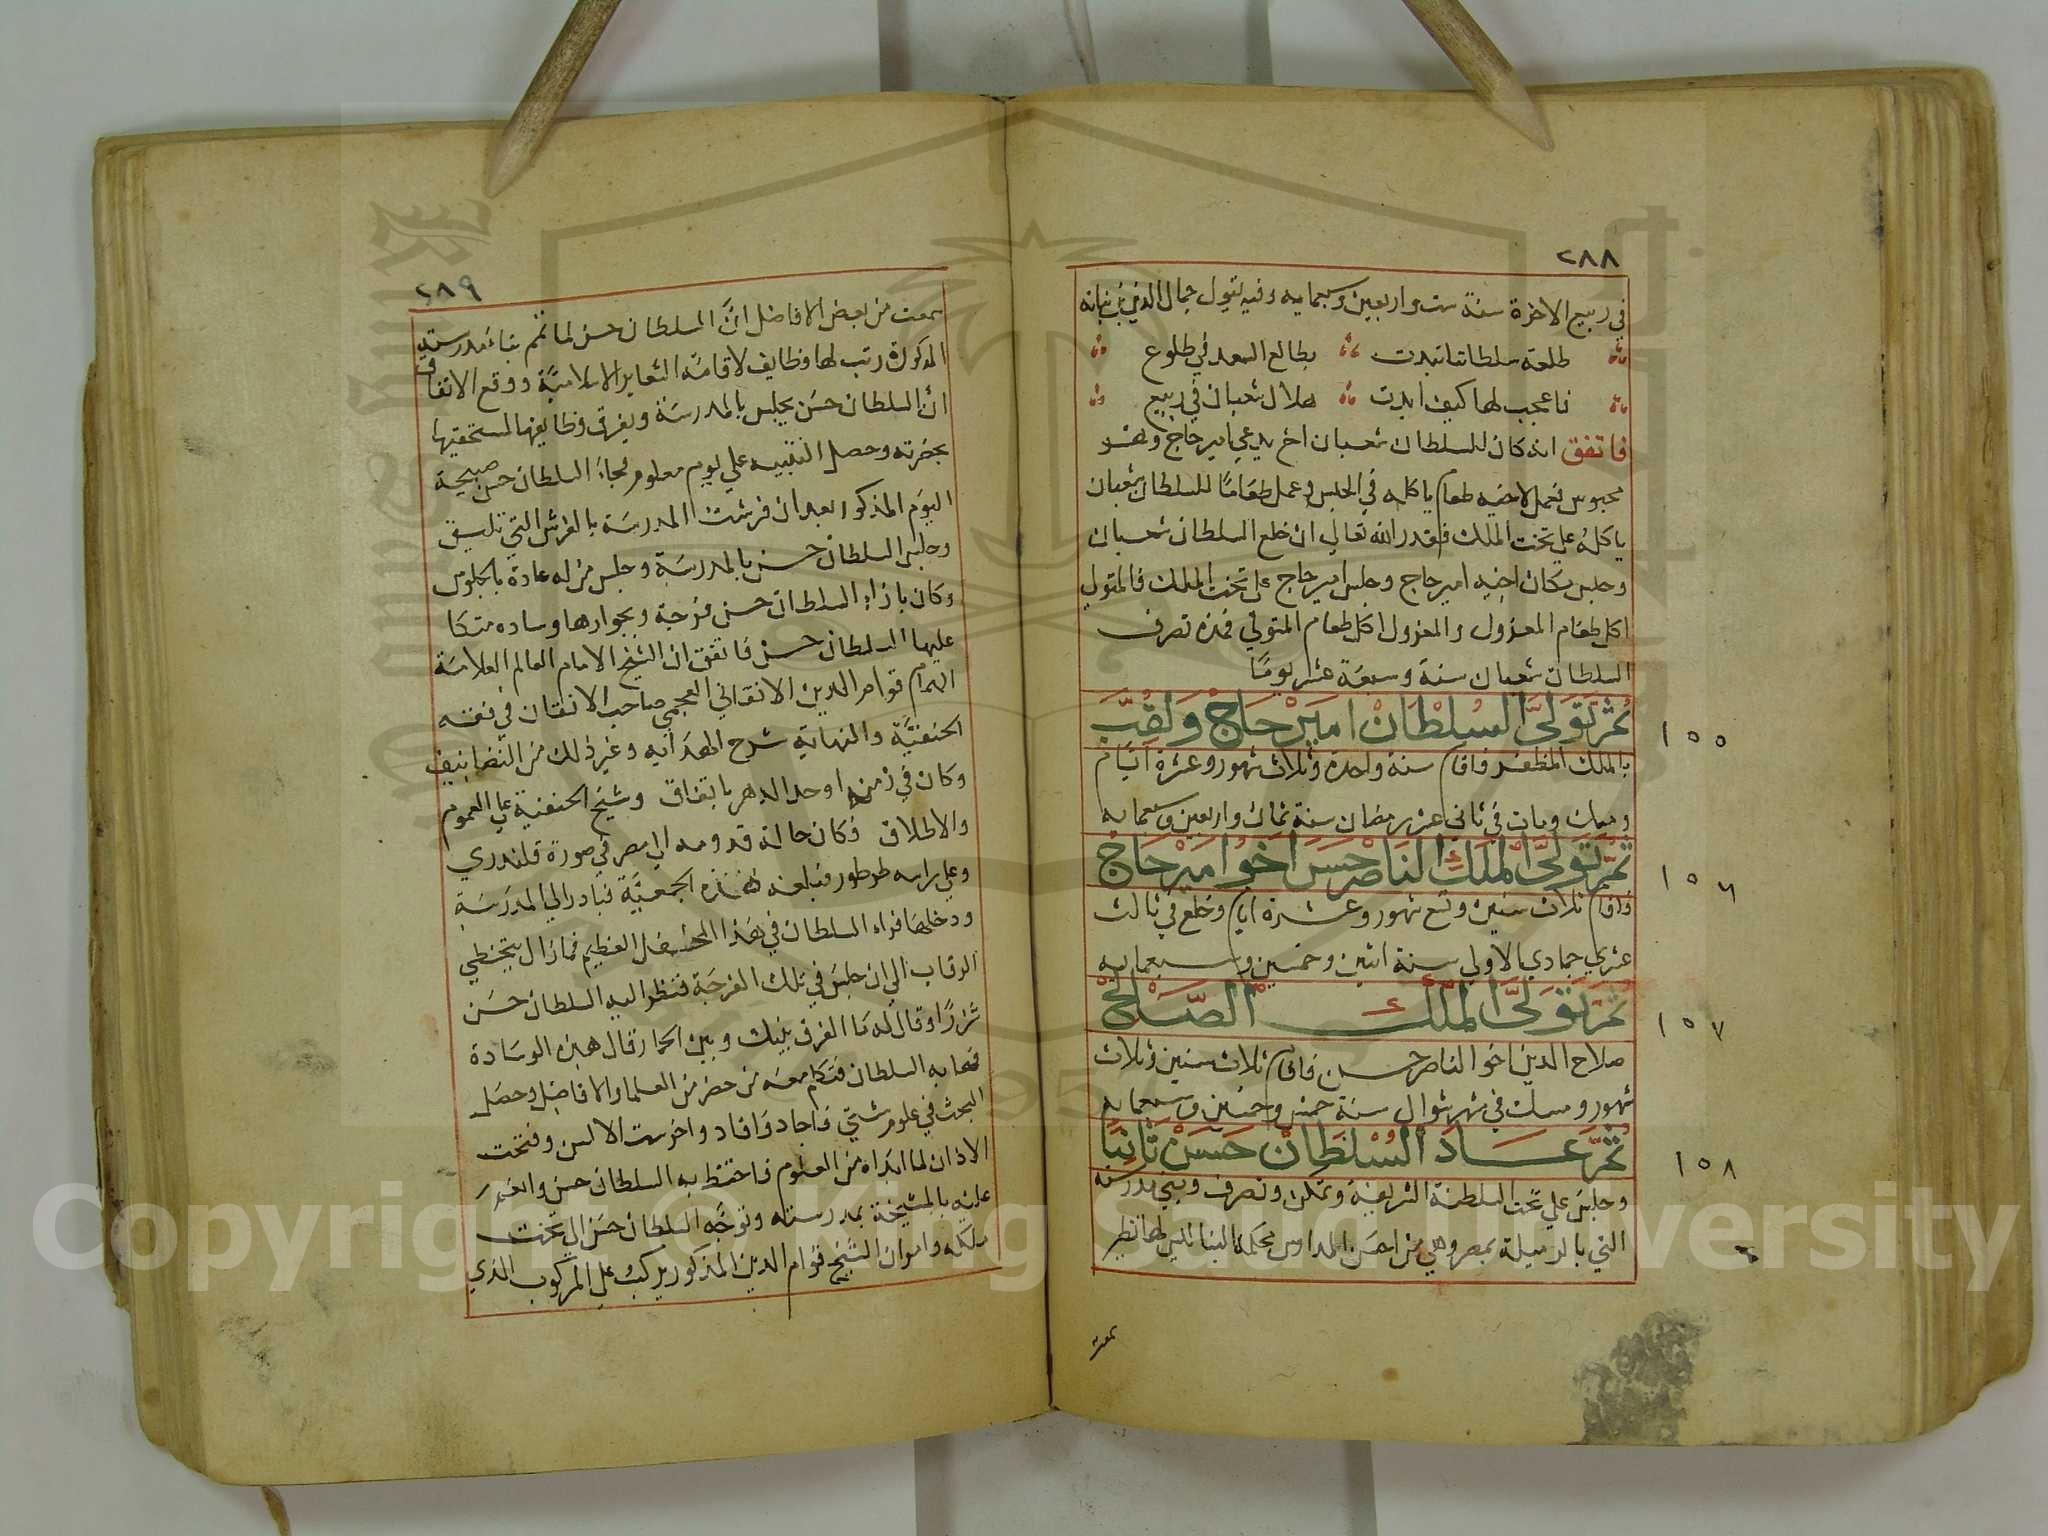 ٢٨٨
في ربيع الاخرة سنة ست واربعين وسبعمايه وفيه يقول جمال الدين بن نباته
طلعة سلطاننا تبدت بطالع السعد في طلوع
فاعجب لها كيف ابدت هلال شعبان في ربيع
فاتفق انه كان للسلطان شعبان اخ يدعي امير حاج وهو
محبوس فعمل لاخيه طعام ياكله في الحبس وعمل طعاما للسلطان شعبان
ياكله علي تخت الملك فقدر الله تعالي ان خلع السلطان شعبان
وجلس مكان اخيه امير حاج وجلس امير حاج علي تخت الملك فالمتولي
اكل طعام المعزول والمعزول اكل طعام المتولي فمدة تصرف
السلطان شعبان سنة وسبعة عشر يوما
ثم تولي السلطان امير حاج ولقب
١٥٥
بالملك المظفر فاقام سنة واحدة وثلاث شهور وعشرة ايام
ومات في ثاني عشر رمضان سنة ثمان واربعين وسبعمايه
ثم تولي الملك الناصر حسن اخو امير حاج
١٥٦
فاقام ثلاث سنين وتسع شهور وعشرة ايام وخلع في ثالث
عشري جمادي الاولي سنة اثنين وخمسين وسبعمايه
ثم تولي الملك الصالح
١٥٧
صلاح الدين اخو الناصر حسن فاقام ثلاث سنين وثلاث
شهور ومسك في شهر شوال سنة خمس وخمسين وسبعمايه
ثم عاد السلطان حسن ثانيا
١٥٨
وجلس علي تخت السلطنة الشريفة وتمكن وتصرف وبني مدرسته
التي بالرميلة بمصر وهي من احسن المدارس محكمة البنا ليس لها نظير
سمعت
٢٨٩
سمعت من بعض الافاضل ان السلطان حسن لما تمم بناء مدرسته
المذكورة رتب لها وظايف لاقامة الشعاير الاسلامية ووقع الاتفاق
ان السلطان حسن يجلس بالمدرسة ويفرق وظايفها لمستحقيها
بحضرته وحصل التنبيه علي يوم معلوم فجاء السلطان حسن صبيحة
اليوم المذكور بعد ان فرشت المدرسة بالفرش التي تليق
وجلس السلطان حسن بالمدرسة وجلس من له عادة بالجلوس
وكان بازاء السلطان حسن فرجة وبجوارها وساده متكا
عليها السلطان حسن فاتفق ان الشيخ الامام العالم العلامة
الهمام قوام الدين الاتقاني العجمي صاحب الاتقان في فقه
الحنفية والنهاية شرح الهدايه وغير ذلك من التصانيف
وكان في زمنه اوحد الدهر باتفاق وشيخ الحنفية علي العموم
والاطلاق فكان حالة قدومه الي مصر في صورة قلندري
وعلي راسه طرطور فبلغه هذه الجمعية فبادر الي المدرسة
ودخلها فراء السلطان في هذا المحفل العظيم فما زال يتخطي
الرقاب الي ان جلس في تلك الفرجة فنظر اليه السلطان حسن
شزرا وقال له ما الفرق بينك وبين الحمار قال هذه الوسادة
فهابه السلطان فتكلم معه من حضر من العلما والافاضل وحصل
البحث في علوم شتي فاجاد وافاد واخرست الالسن وفتحت
الاذان لما ابداه من العلوم فاحتفظ به السلطان حسن وانعم
عليه بالمشيخة بمدرسته وتوجه السلطان حسن الي تخت
ملكه وامر ان الشيخ قوام الدين المذكور يركب علي المركوب الذي
Copyright © King Saud University